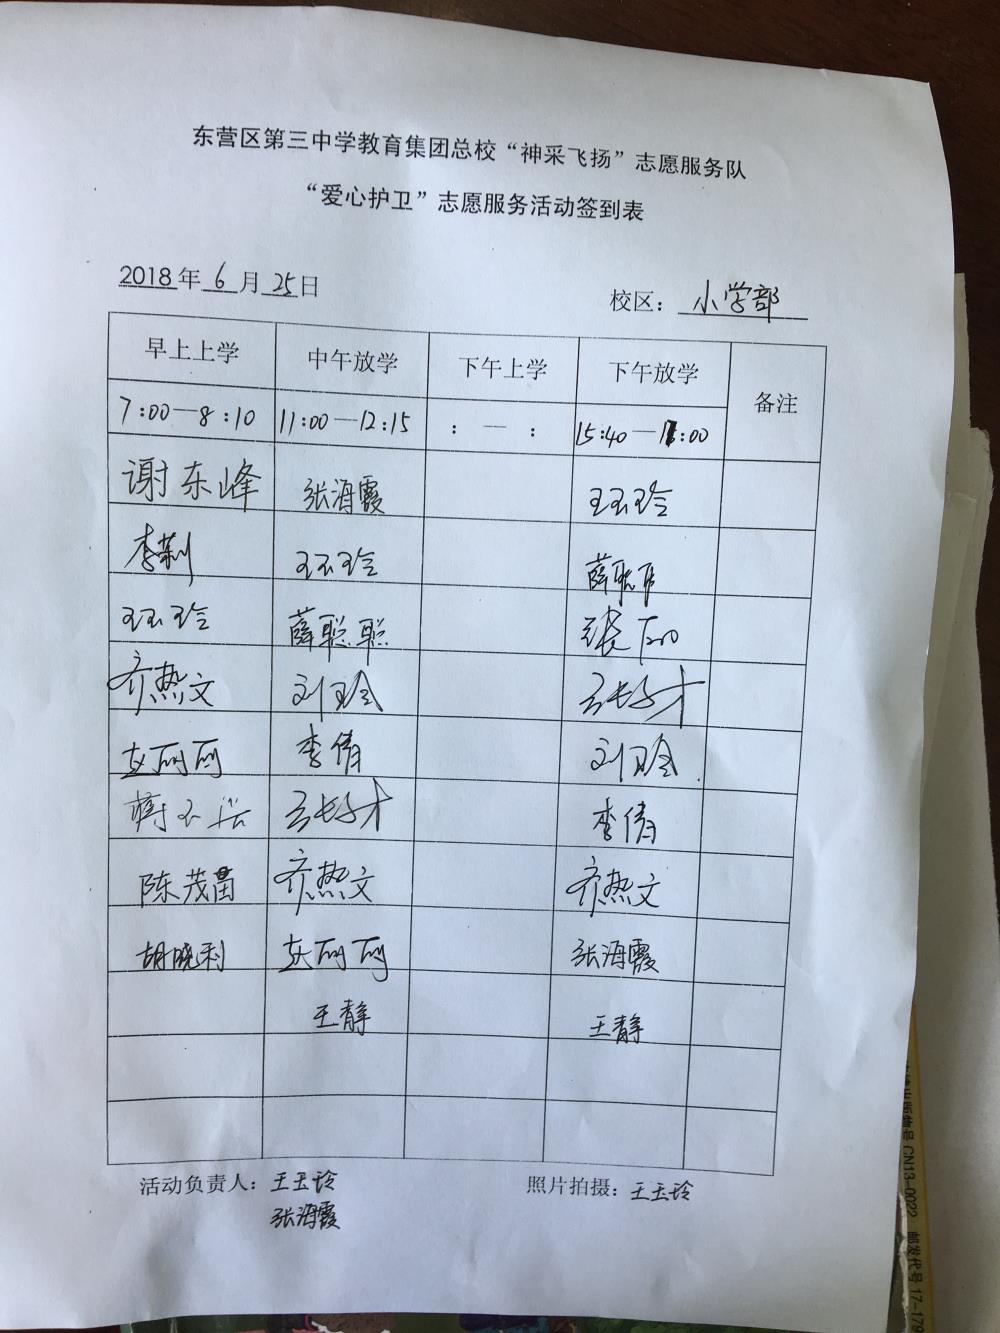 东营区第三中学教育集团总校“神采飞扬”志愿服务队
“爱心护卫”志愿服务活动签到表
2018年6月25日 校区：小学部
早上上学 中午放学 下午上学 下午放学 备注
7:00—8:10 11:00—12:15 : — : 15:40—:00
谢东峰 张海霞 王玉玲
李莉 王玉玲 薛聪聪
王玉玲 薛聪聪 张丽
齐热文 刘玲
赵丽丽 李倩 刘玲
蒋 李倩
陈茂昌 齐热文 齐热文
胡晓利 赵丽丽 张海霞
王静 王静
活动负责人：王玉玲 照片拍摄：王玉玲
张海霞
出版物号 CN13-0022 邮发代号 17-179